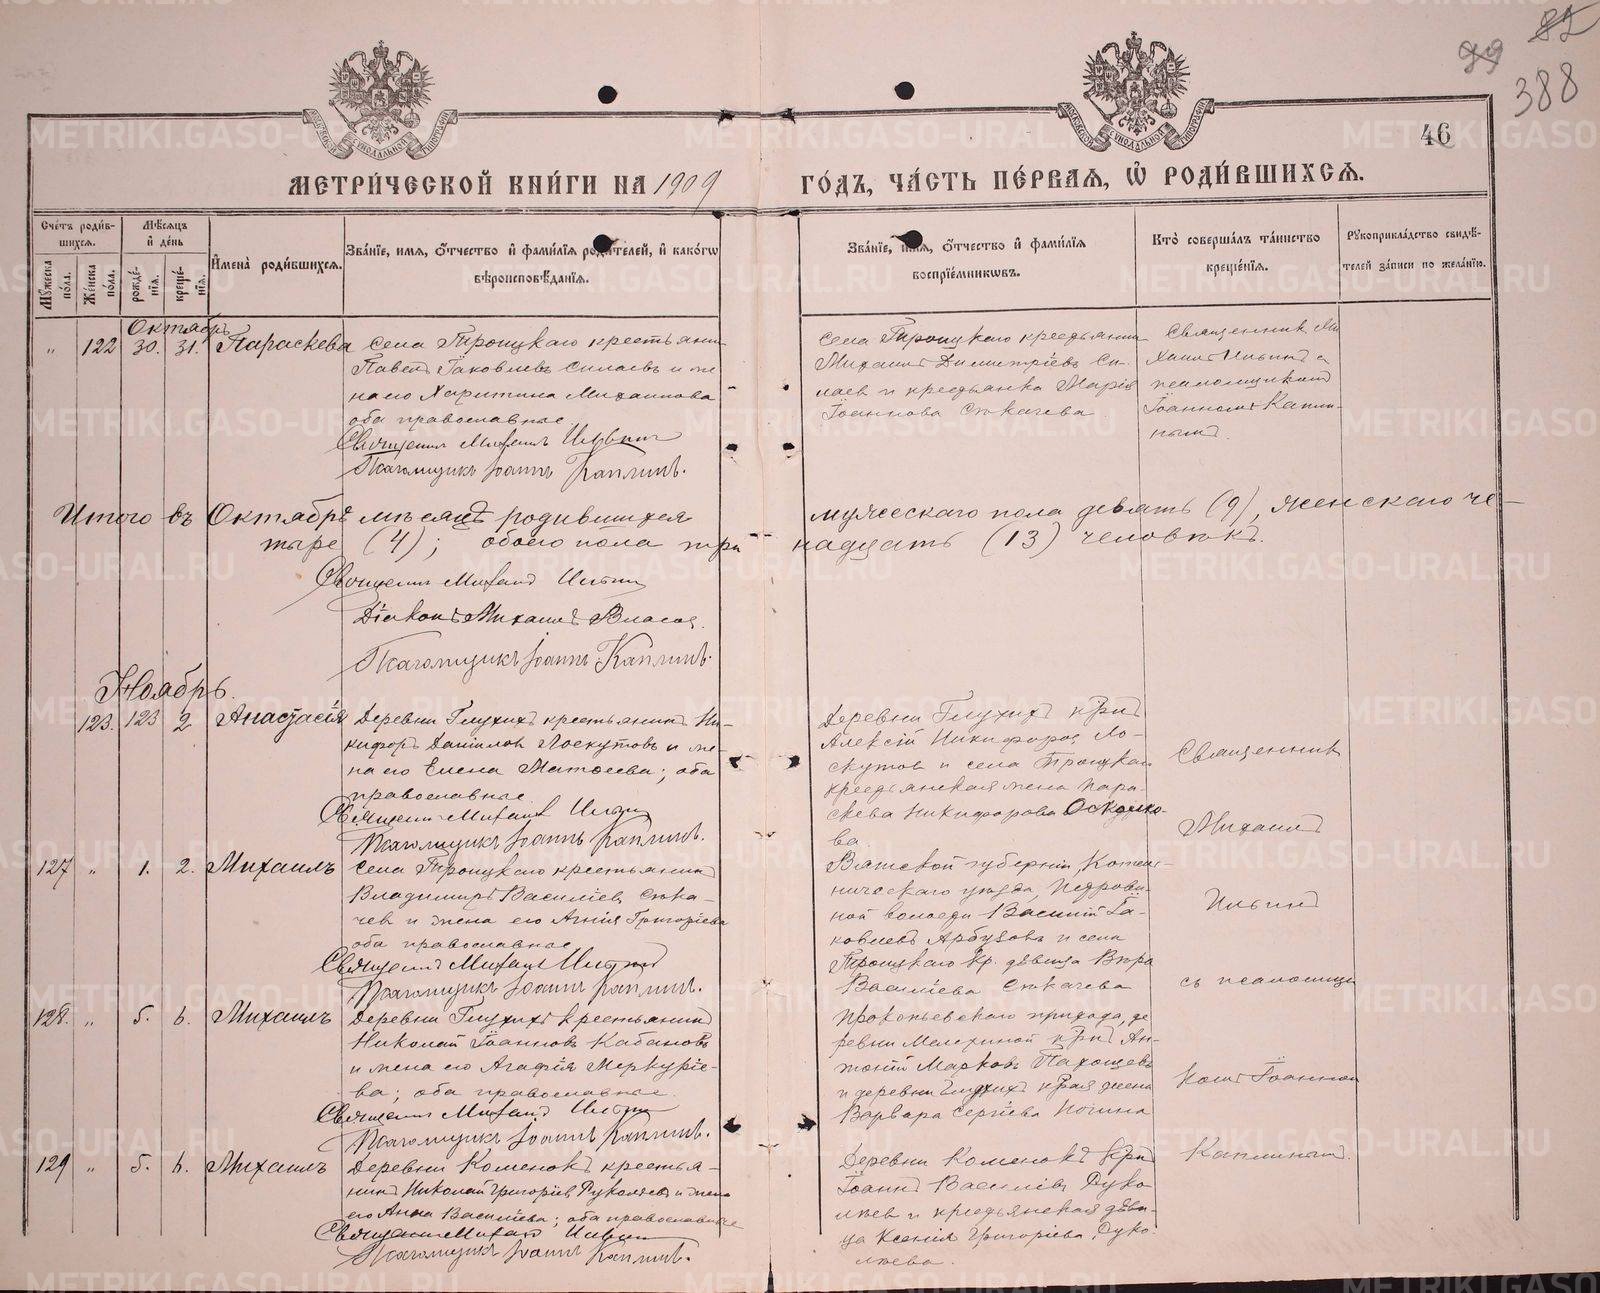 82
99
388
46
МОСКОВСКОЙ СѴНОДАЛЬНОЙ ТИПОГРАФІИ
МОСКОВСКОЙ СѴНОДАЛЬНОЙ ТИПОГРАФІИ
МЕТРИ́ЧЕСКОЙ КНИ́ГИ НА 1909 ГО́ДЪ, ЧА́СТЬ ПЕ́РВАЯ, Ѽ РОДИ́ВШИХСЯ.
Сче́тъ роди́в-
шихся.
Мѣ́сяцъ
и де́нь
Му́жеска
по́ла.
Же́нска
по́ла.
рожде́-
нія.
креще́-
нія.
Имена̀ роди́вшихся.
Зва́ніе, имя, о́тчество и фами́лія роди́телей, и како́гѡ
вѣроисповѣ́данія.
Зва́ніе, имя, о́тчество и фами́лія
воспріе́мниковъ.
Кто̀ соверша́лъ та́инство
креще́нія.
Рукоприкла́дство свидѣ́-
телей за́писи по жела́нію.
Октябрь
" 122 30. 31. Параскева
Села Троицкаго крестьянин
Павелъ Іаковлевъ Силаевъ и же-
на его Харитина Михаилова
оба православные.
Священникъ Михаилъ Ильинъ
Псаломщикъ Іоаннъ Каплинъ.
Села Троицкаго крестьянин
Михаилъ Димитріевъ Си-
лаев и крестьянка Марія
Іоаннова Сюкачева
Священник Ми
хаилъ Ильинъ с
псаломщикомъ
Іоанномъ Капли-
нымъ.
Итого въ Октябрѣ мѣсяцѣ родившихся мужескаго пола девять (9), женскаго че-
тыре (4); обоего пола три надцать (13) человѣкъ.
Священникъ Михаилъ Ильинъ
Діаконъ Михаилъ Власов.
Псаломщикъ Іоаннъ Каплинъ.
Ноябрь.
123. 123 2 Анастасія
Деревни Глухихъ крестьянинъ Ни-
кифоръ Даніилов Лоскутовъ и же-
на его Елена Матѳеева; оба
православные.
Священникъ Михаилъ Ильинъ
Псаломщикъ Іоаннъ Каплинъ.
Деревни Глухихъ кр-нъ
Алексій Никифоров Ло-
скутов и села Троицкаго
крестьянская жена Пара-
скева Никифорова
ва.
127 " 1. 2. Михаилъ
Села Троицкаго крестьянинъ
Владимиръ Василіев Сюка-
чев и жена его Агнія Григоріева
оба православные
Священникъ Михаилъ Ильинъ
Псаломщикъ Іоаннъ Каплинъ.
Вятской губерніи, Котель-
ническаго уѣзда,
ной волости Василій Іа-
ковлевъ Арбузовъ и села
Троицкаго кр. дѣвица Вѣра
Василіева Сюкачева
128. " 5. 6. Михаилъ
Деревни Глухихъ крестьянинъ
Николай Іоаннов Кабановъ
и жена его Агафія Меркуріе-
ва; оба православные.
Священникъ Михаилъ Ильинъ
Псаломщикъ Іоаннъ Каплинъ.
Прокопьевскаго прихода, де
ревни кр-нъ Ан-
тоній Марков
и деревни Глухихъ кр-ая жена
Варвара Сергіева
129 " 5. 6. Михаилъ
Деревни Коменокъ крестья-
нинъ Николай Григоріев Дуколѣев и жена
его Анна Василіева; оба православные
Священникъ Михаилъ Ильинъ
Псаломщикъ Іоаннъ Каплинъ.
Деревни Коменокъ кр-нъ
Іоаннъ Василіев Дуко
лѣев и крестьянская дѣви-
ца Ксенія Григоріева Дуко-
лѣева.
Священник
Михаилъ
Ильинъ
съ псаломщи
комъ Іоанном
Каплинымъ.
METRIKI.GASO-URAL.RU